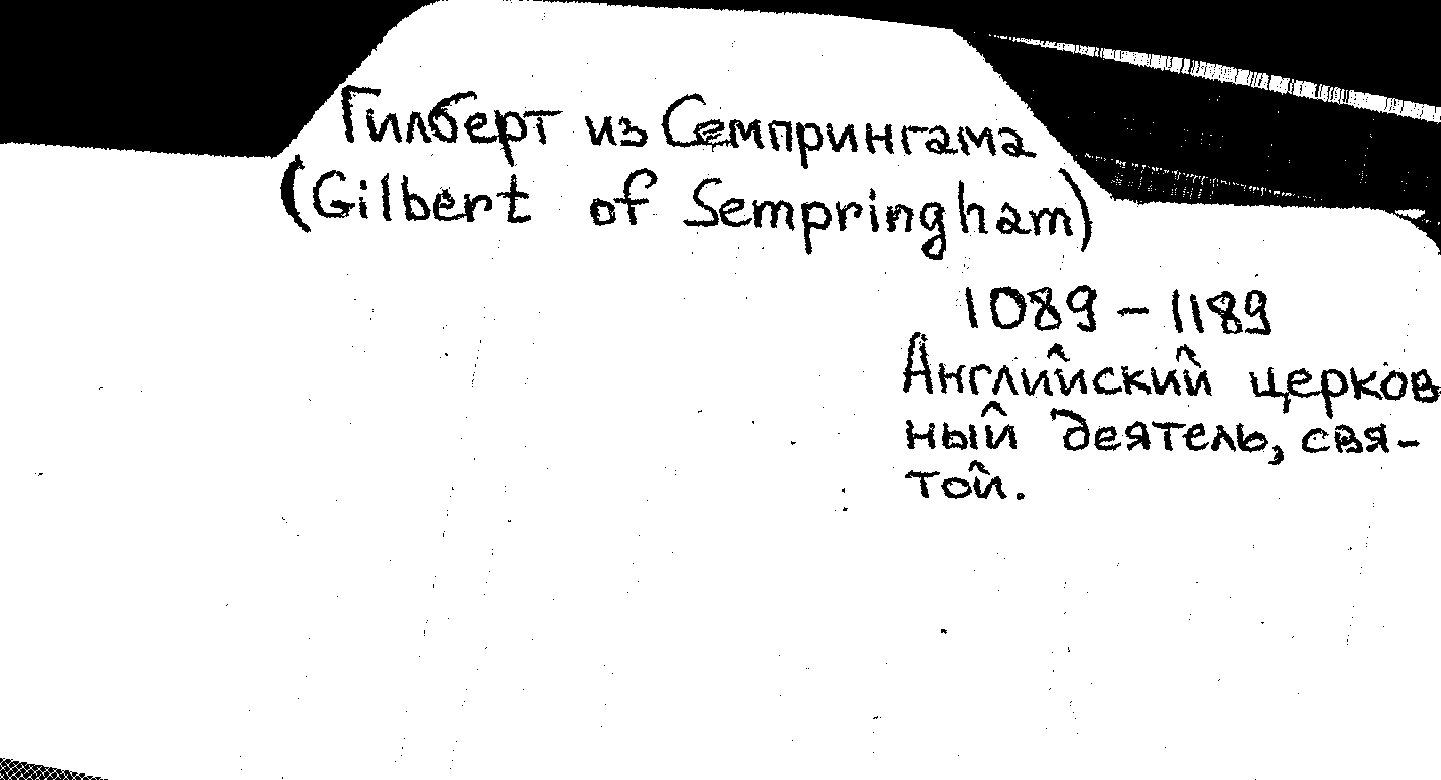 Гилберт из Семпрингама
(Gilbert of Sempringham)
1089 – 1189
Английский церков
ный деятель, свя-
той.